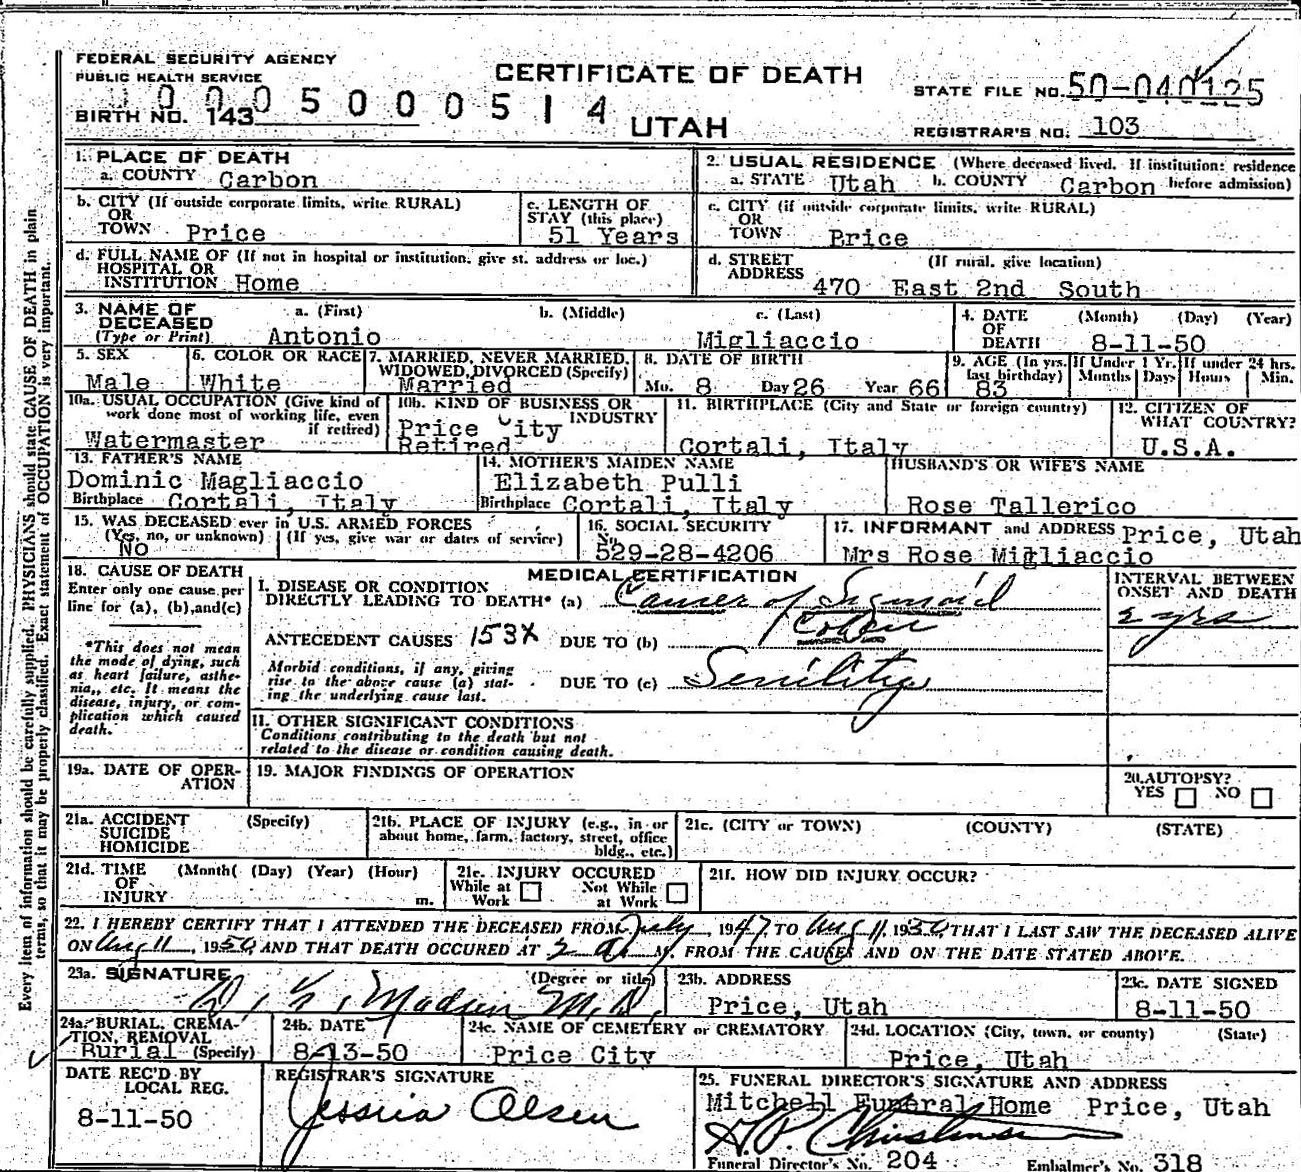 FEDERAL SECURITY AGENCY
PUBLIC HEALTH SERVICE
CERTIFICATE OF DEATH
STATE FILE NO. 50-040125
0005000514
BIRTH NO. 143
UTAH
REGISTRAR'S NO. 103
1. PLACE OF DEATH
a. COUNTY Carbon
2. USUAL RESIDENCE (Where deceased lived. If institution: residence before admission)
a. STATE Utah b. COUNTY Carbon
b. CITY (If outside corporate limits, write RURAL)
OR
TOWN Price
c. LENGTH OF
STAY (this place)
51 Years
c. CITY (if outside corporate limits, write RURAL)
OR
TOWN Price
d. FULL NAME OF (If not in hospital or institution, give st. address or loc.)
HOSPITAL OR
INSTITUTION Home
d. STREET (If rural, give location)
ADDRESS
470 East 2nd South
3. NAME OF DECEASED
(Type or Print)
a. (First) b. (Middle) c. (Last)
Antonio Migliaccio
4. DATE OF DEATH (Month) (Day) (Year)
8-11-50
5. SEX
Male
6. COLOR OR RACE
White
7. MARRIED, NEVER MARRIED,
WIDOWED, DIVORCED (Specify)
Married
8. DATE OF BIRTH
Mo. 8 Day 26 Year 66
9. AGE (In yrs. last birthday)
83
If Under 1 Yr.
Months Days
If under 24 hrs.
Hours Min.
10a. USUAL OCCUPATION (Give kind of
work done most of working life, even
if retired)
Watermaster
10b. KIND OF BUSINESS OR
INDUSTRY
Price City
Retired
11. BIRTHPLACE (City and State or foreign country)
Cortali, Italy
12. CITIZEN OF
WHAT COUNTRY?
U.S.A.
13. FATHER'S NAME
Dominic Magliaccio
Birthplace Cortali, Italy
14. MOTHER'S MAIDEN NAME
Elizabeth Pulli
Birthplace Cortali, Italy
HUSBAND'S OR WIFE'S NAME
Rose Tallerico
15. WAS DECEASED ever in U.S. ARMED FORCES
(Yes, no, or unknown) (If yes, give war or dates of service)
No
16. SOCIAL SECURITY
No.
529-28-4206
17. INFORMANT and ADDRESS Price, Utah
Mrs Rose Migliaccio
18. CAUSE OF DEATH
Enter only one cause per
line for (a), (b), and (c)
*This does not mean
the mode of dying, such
as heart failure, asthe-
nia,, etc. It means the
disease, injury, or com-
plication which caused
death.
MEDICAL CERTIFICATION
I. DISEASE OR CONDITION
DIRECTLY LEADING TO DEATH* (a) Cancer of Sigmoid
Colon
ANTECEDENT CAUSES 153X DUE TO (b)
Morbid conditions, if any, giving
rise to the above cause (a) stat-
ing the underlying cause last.
DUE TO (c) Senility
INTERVAL BETWEEN
ONSET AND DEATH
2 yrs
II. OTHER SIGNIFICANT CONDITIONS
Conditions contributing to the death but not
related to the disease or condition causing death.
19a. DATE OF OPER-
ATION
19. MAJOR FINDINGS OF OPERATION
20. AUTOPSY?
YES NO
21a. ACCIDENT (Specify)
SUICIDE
HOMICIDE
21b. PLACE OF INJURY (e.g., in or
about home, farm, factory, street, office
bldg., etc.)
21c. (CITY or TOWN) (COUNTY) (STATE)
21d. TIME (Month( (Day) (Year) (Hour)
OF
INJURY m.
21e. INJURY OCCURED
While at Work Not While at Work
21f. HOW DID INJURY OCCUR?
22. I HEREBY CERTIFY THAT I ATTENDED THE DECEASED FROM July, 1947 TO Aug 11, 1950 THAT I LAST SAW THE DECEASED ALIVE
ON Aug 11, 1950, AND THAT DEATH OCCURED AT 2 A M, FROM THE CAUSES AND ON THE DATE STATED ABOVE.
23a. SIGNATURE (Degree or title)
Madsen M.D.
23b. ADDRESS
Price, Utah
23c. DATE SIGNED
8-11-50
24a. BURIAL, CREMA-
TION, REMOVAL
Burial (Specify)
24b. DATE
8-13-50
24c. NAME OF CEMETERY or CREMATORY
Price City
24d. LOCATION (City, town, or county) (State)
Price, Utah
DATE REC'D BY
LOCAL REG.
8-11-50
REGISTRAR'S SIGNATURE
Jessria Olsen
25. FUNERAL DIRECTOR'S SIGNATURE AND ADDRESS
Mitchell Funeral Home Price, Utah
Funeral Director's No. 204 Embalmer's No. 318
Every item of information should be carefully supplied. PHYSICIANS should state CAUSE OF DEATH in plain
terms, so that it may be properly classified. Exact statement of OCCUPATION is very important.